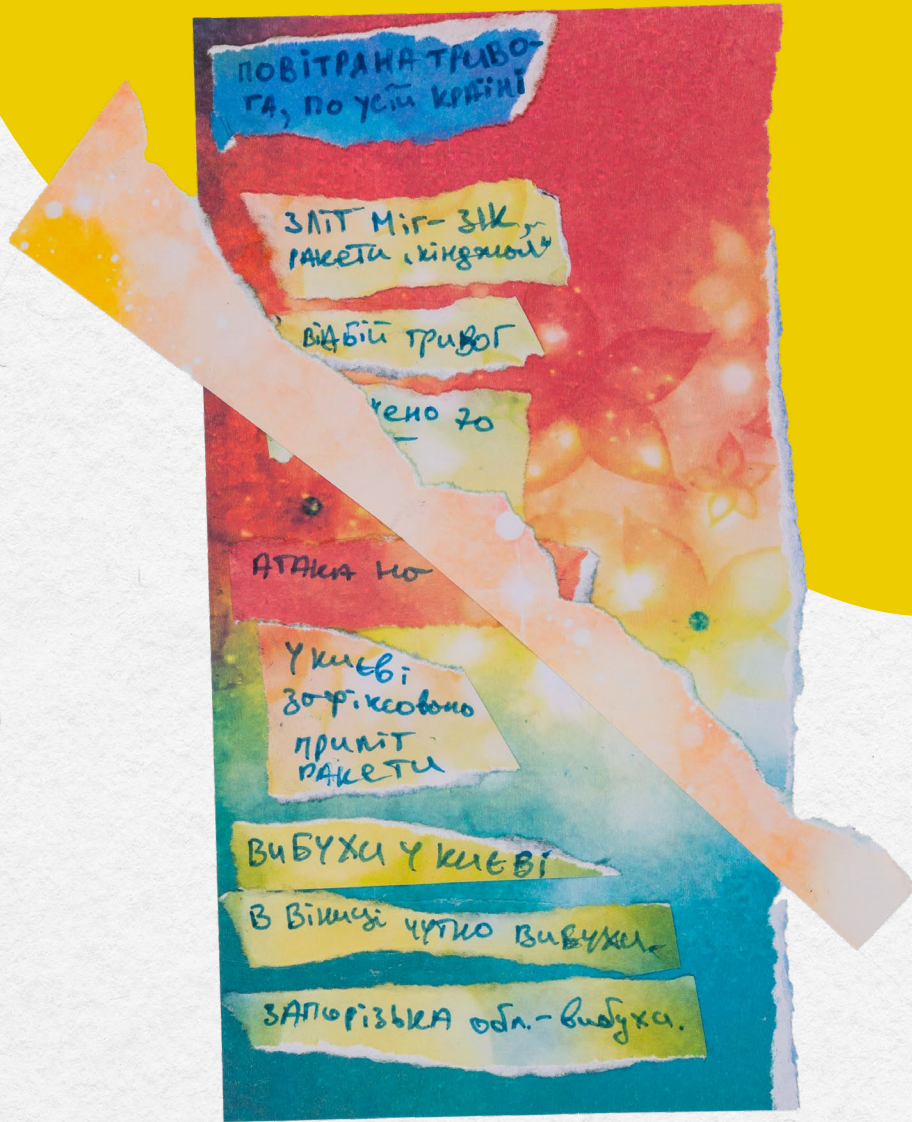 ПОВІТРЯНА ТРИВО-
ГА, ПО УСІЙ КРАЇНІ
ЗЛІТ МіГ-31К,
РАКЕТИ „Кінджал“
ВІДБІЙ ТРИВОГ
чено 70
АТАКА на
У КИЄВІ
зафіксовано
ПРИЛІТ
РАКЕТИ
ВИБУХИ У КИЄВІ
В Вінниці ЧУТНО ВИБУХИ.
ЗАПОРІЗЬКА обл. – вибухи.